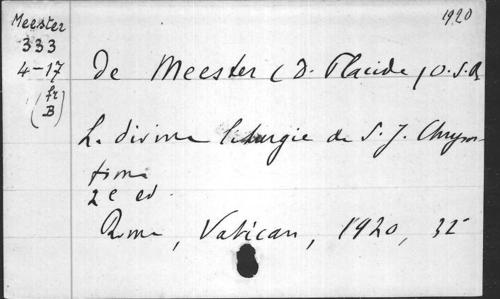 1920
Meester
333
4-17
(fr
B)
De Meester (D. Placide) O.S.B
La divine liturgie de S. J. Chrysos-
tome
2e ed.
Rome, Vatican, 1920, 32